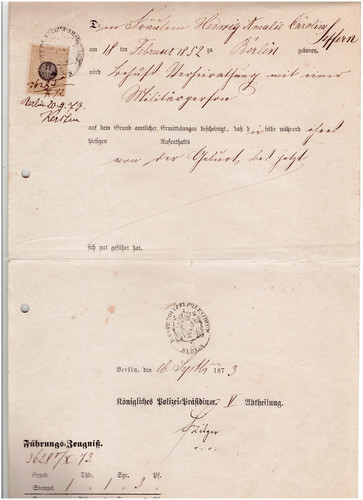 Dem Fräulein Hedwig Amalie Caroline
Seffern
am 18 ten Februar 1852 zu Berlin geboren,
wird behufs Verheirathung mit einer
Militärperson
auf dem Grund amtlicher Ermittelungen bescheinigt, daß dieselbe während ihres
hiesigen Aufenthalts
von der Geburt bis jetzt
sich gut geführt hat.
Berlin 20.9.73.
KÖNIGL. POLIZEI-PRAESIDIUM
BERLIN
Berlin, den 16 Septbr 1873
Königliches Polizei-Präsidium. V Abtheilung.
Führungs-Zeugniß.
3628 V/X 73.
Thlr. Sgr. Pf.
Stempel